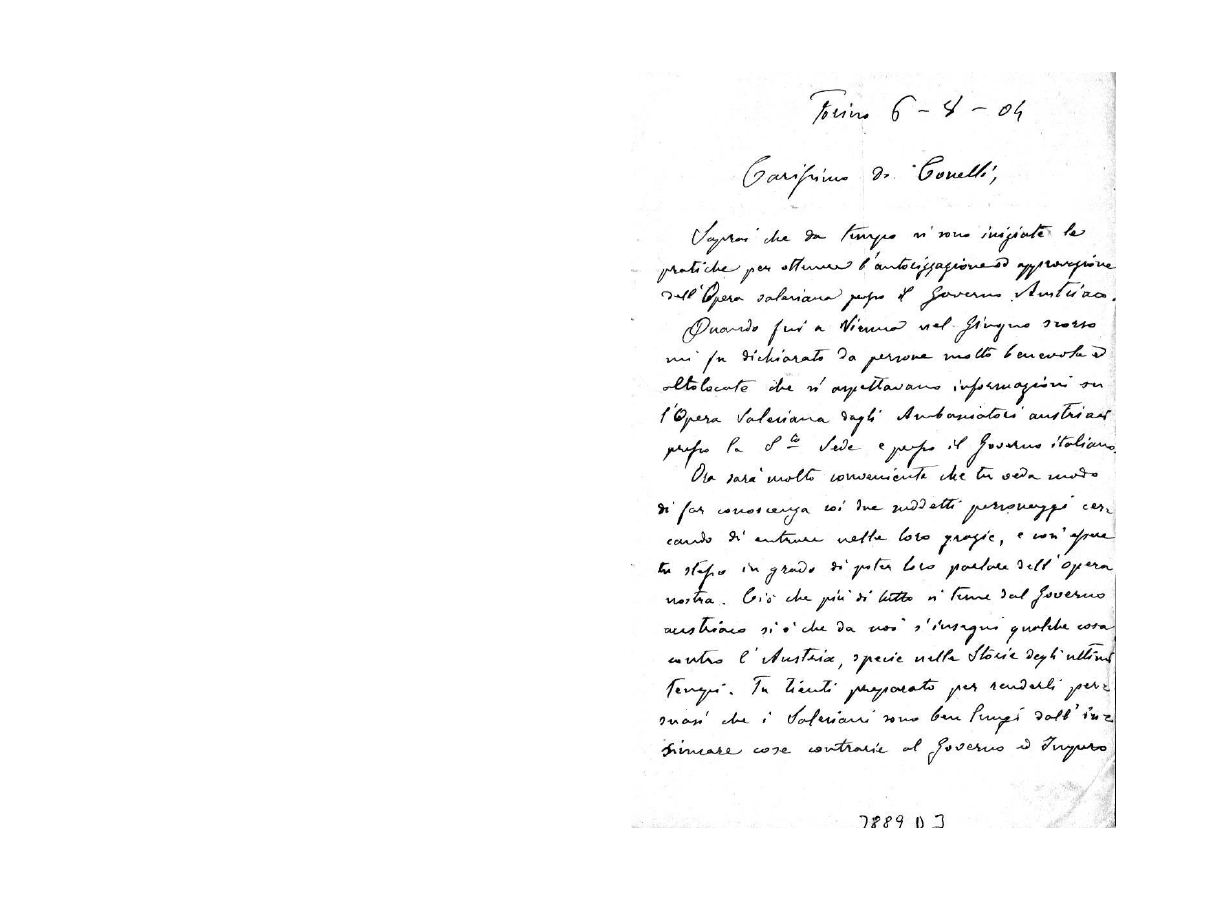 Torino 6 - 8 - 04
Carissimo D. Conelli,
Saprai che da tempo si sono iniziate le
pratiche per ottenere l'autorizzazione ed approvazione
dell'Opera salesiana presso il Governo Austriaco.
Quando fui a Vienna nel Giugno scorso
mi fu dichiarato da persone molto benevole ed
altolocate che si aspettavano informazioni su
l'Opera Salesiana dagli Ambasciatori austriaci
presso la S.ta Sede e presso il Governo italiano.
Ora sarà molto conveniente che tu veda modo
di far conoscenza coi due suddetti personaggi cer=
cando di entrare nelle loro grazie, e così essere
tu stesso in grado di poter loro parlare dell'opera
nostra. Ciò che più di tutto si teme dal Governo
austriaco si è che da noi s'insegni qualche cosa
contro l'Austria, specie nella Storia degli ultimi
tempi. Tu tienti preparato per renderli per=
suasi che i Salesiani sono ben lungi dall'in=
sinuare cose contrarie al Governo ed Impero
7889 D 3